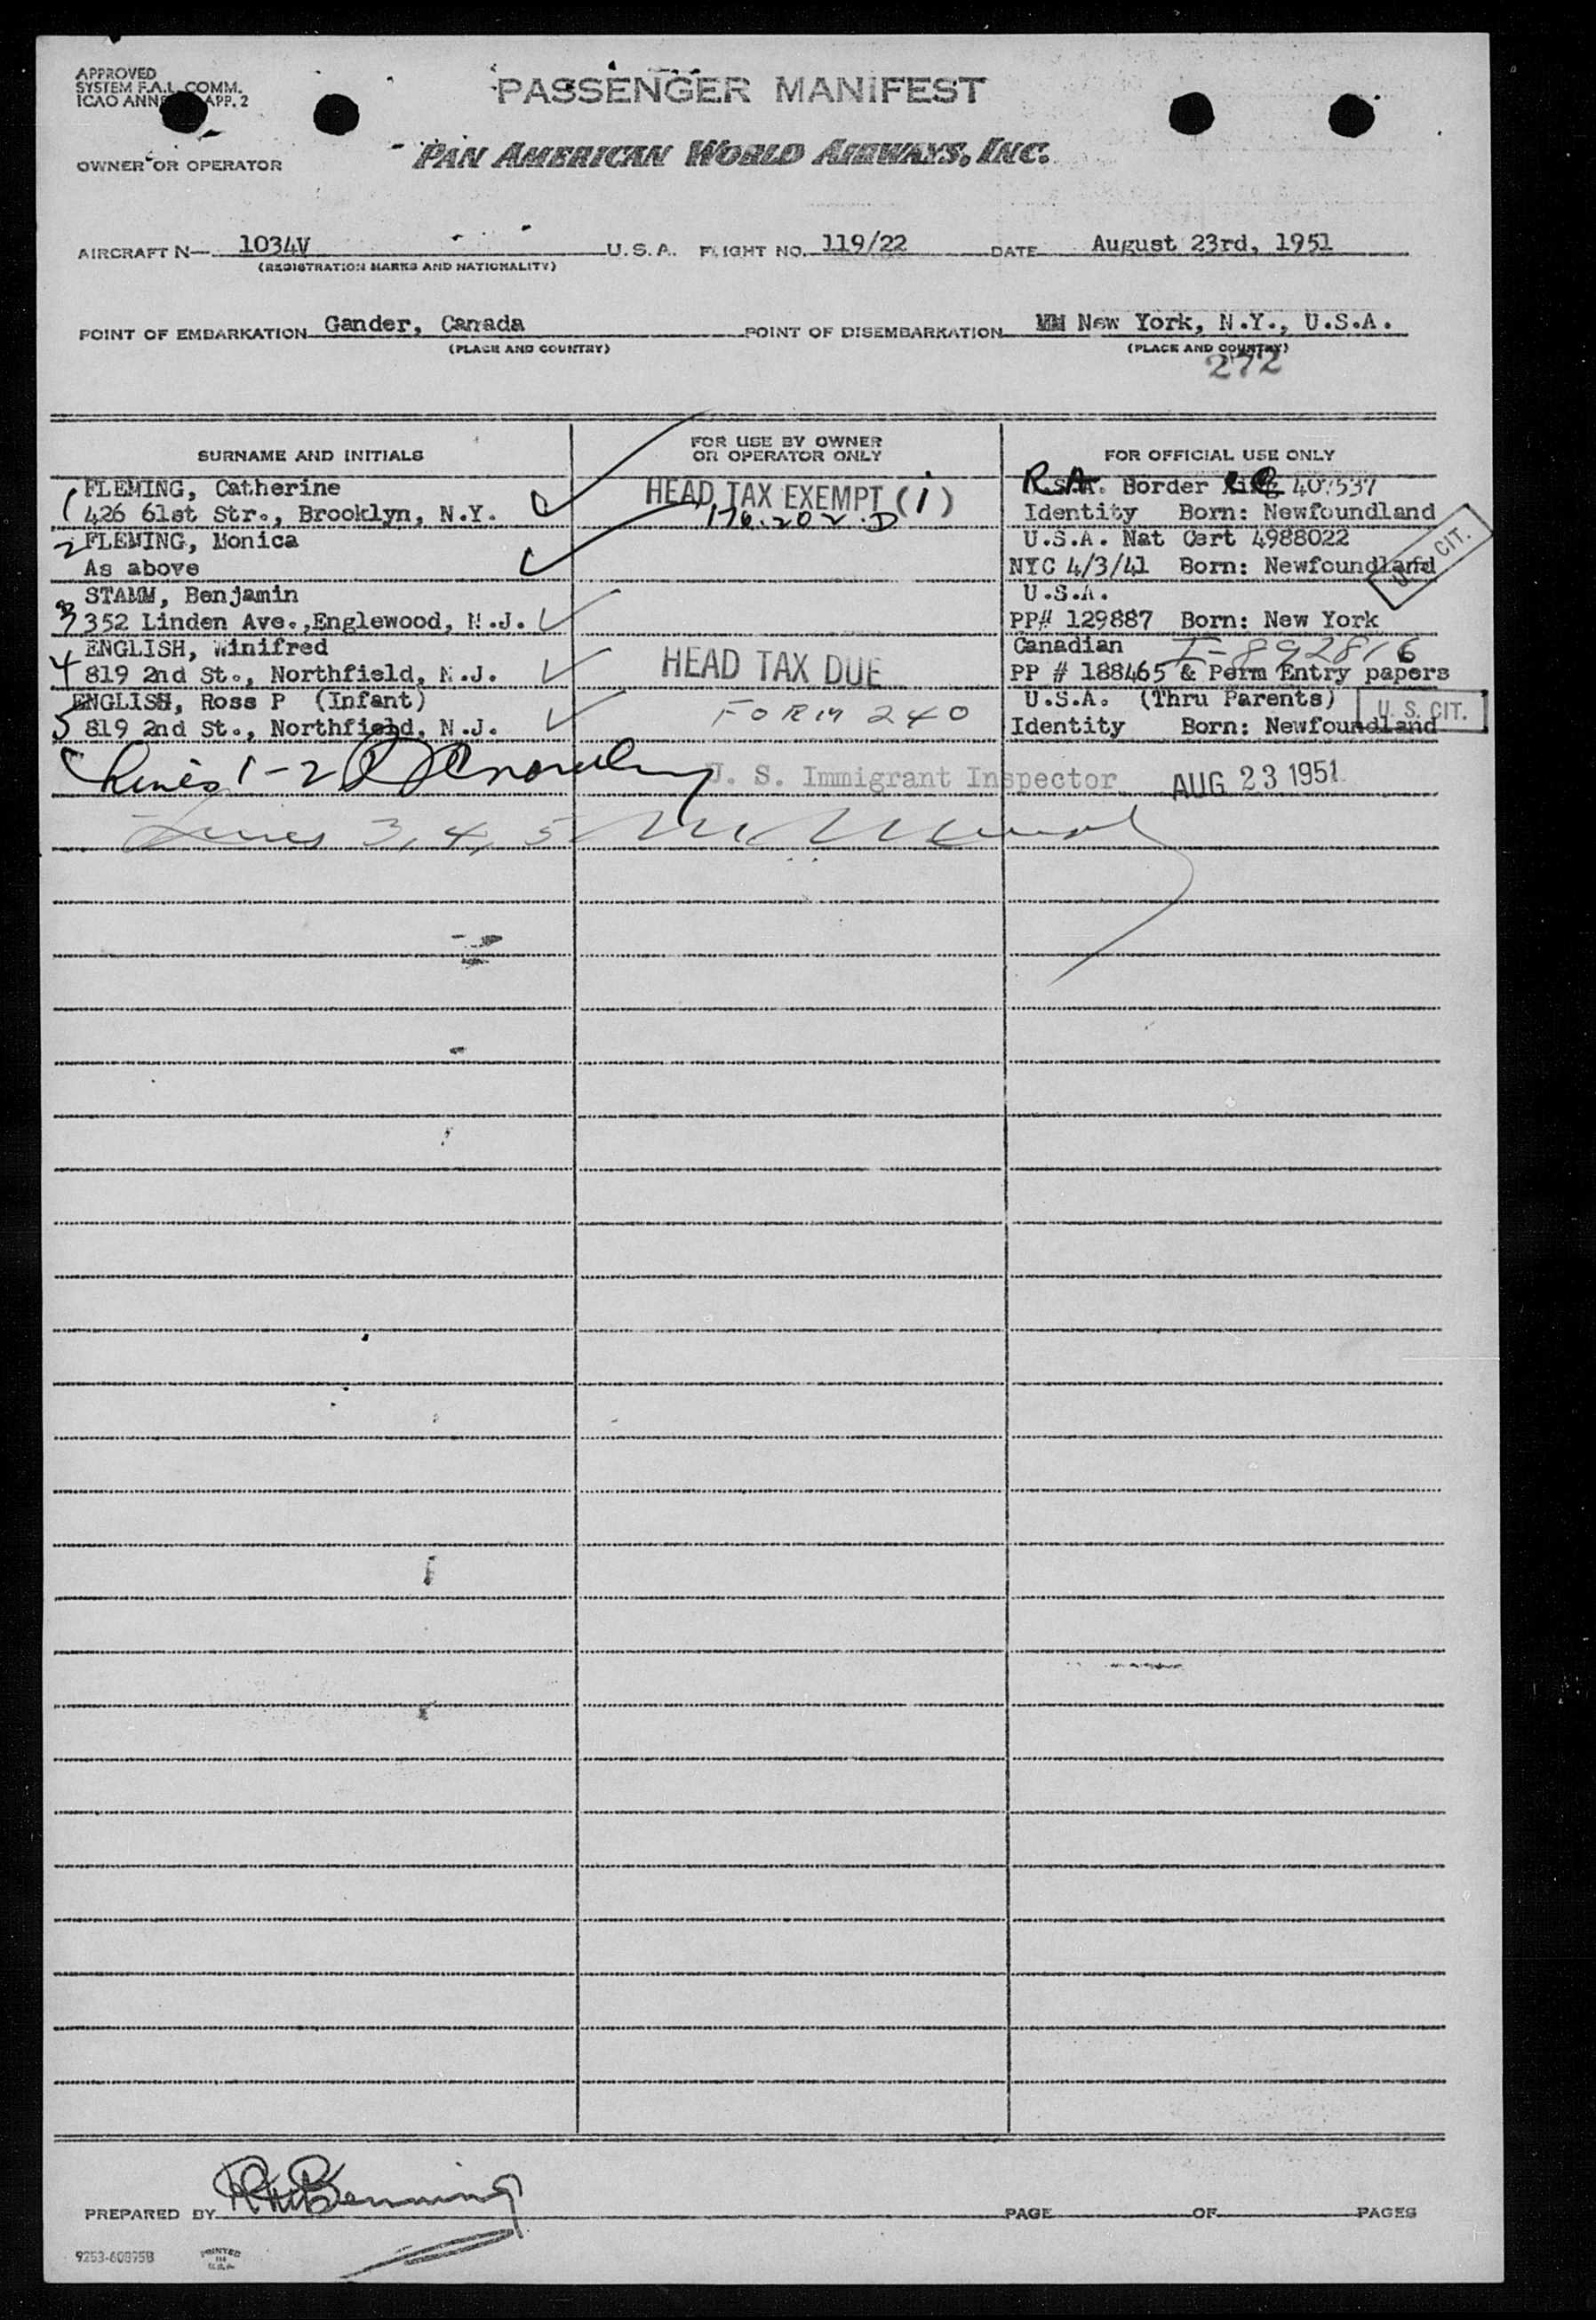 APPROVED
SYSTEM F.A.L. COMM.
ICAO ANNE APP. 2
PASSENGER MANIFEST
OWNER OR OPERATOR PAN AMERICAN WORLD AIRWAYS, INC.
AIRCRAFT N— 1034V U.S.A. FLIGHT NO. 119/22 DATE August 23rd, 1951
(REGISTRATION MARKS AND NATIONALITY)
POINT OF EMBARKATION Gander, Canada POINT OF DISEMBARKATION New York, N.Y., U.S.A.
(PLACE AND COUNTRY) (PLACE AND COUNTRY)
272
SURNAME AND INITIALS FOR USE BY OWNER OR OPERATOR ONLY FOR OFFICIAL USE ONLY
1 FLEMING, Catherine HEAD TAX EXEMPT (i) R.A. Border 407537
426 61st Str., Brooklyn, N.Y. 176.202.D Identity Born: Newfoundland
2 FLEMING, Monica U.S.A. Nat Cert 4988022
As above NYC 4/3/41 Born: Newfoundland U.S. CIT.
STAMM, Benjamin U.S.A.
3 352 Linden Ave.,Englewood, N.J. PP# 129887 Born: New York
ENGLISH, Winifred Canadian I-892816
4 819 2nd St., Northfield, N.J. HEAD TAX DUE PP # 188465 & Perm Entry papers
ENGLISH, Ross P (Infant) FORM 240 U.S.A. (Thru Parents) U. S. CIT.
5 819 2nd St., Northfield, N.J. Identity Born: Newfoundland
Lines 1-2 U. S. Immigrant Inspector AUG 23 1951
Lines 3, 4, 5
PREPARED BY R M Benning PAGE OF PAGES
9253-60875B PRINTED IN U.S.A.